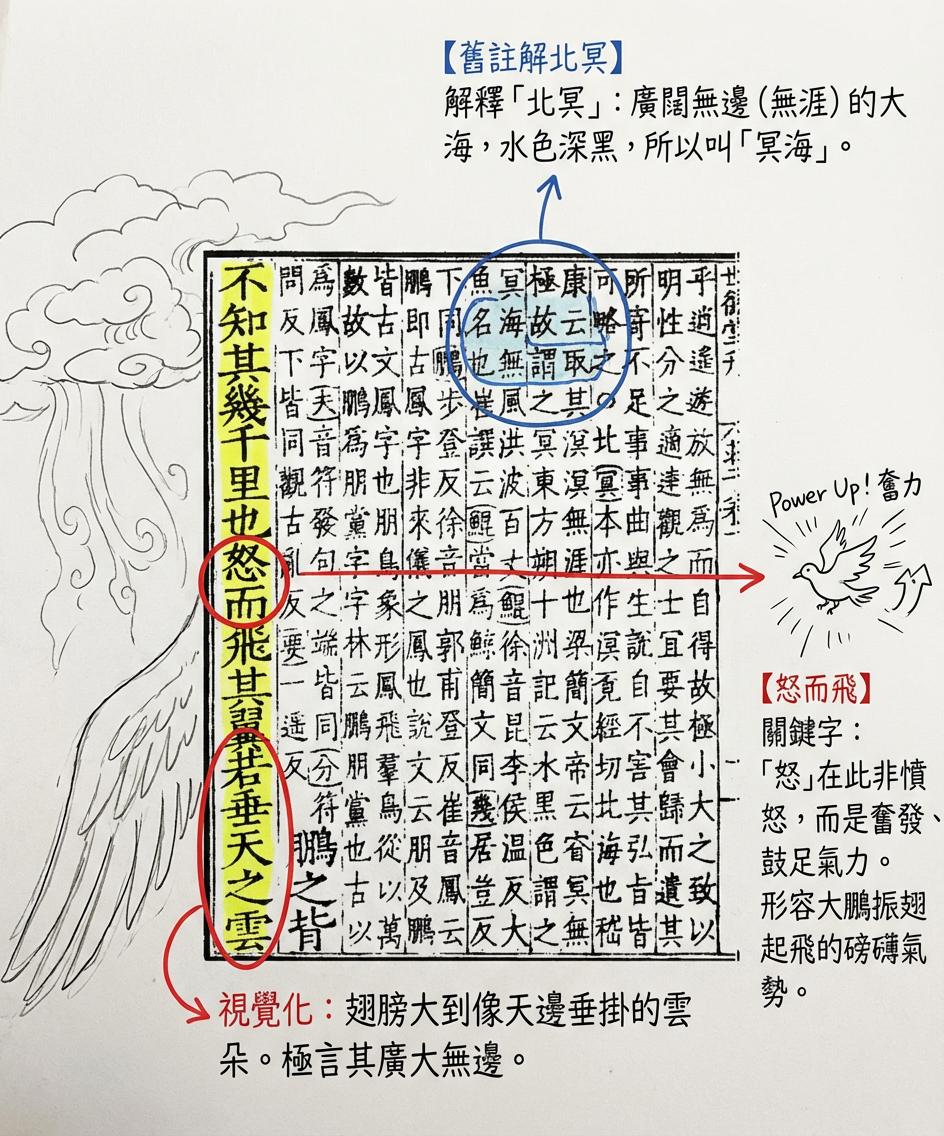 【舊註解北冥】
解釋「北冥」：廣闊無邊(無涯)的大
海，水色深黑，所以叫「冥海」。
乎逍遙遊放無爲而自得故極小大之致以
明性分之適達觀之士宜要其會歸而遺其
所寄不足事事曲與生說自不害其弘旨皆
可略之○北(冥)本亦作溟覓經切北海也嵇
康云取其溟漠無涯也梁簡文帝云窅冥無
極故謂之冥東方朔十洲記云水黑色謂之
冥海無風洪波百丈(鯤)徐音昆李侯溫反大
魚名也崔譔云(鯤)當爲鯨簡文同(幾)居豈反
下同鵬步登反徐音朋郭甫登反崔音鳳云
鵬即古鳳字非來儀之鳳也說文云朋及鵬
皆古文鳳字也朋鳥象形鳳飛羣鳥從以萬
數故以鵬爲朋黨字字林云鵬朋黨也古以
爲鳳字(夫)音符發句之端皆同(分)符
問反下皆同觀古亂反(要)一遥反
鵬之背
不知其幾千里也怒而飛其翼若垂天之雲
Power Up! 奮力
【怒而飛】
關鍵字：
「怒」在此非憤
怒，而是奮發、
鼓足氣力。
形容大鵬振翅
起飛的磅礴氣
勢。
視覺化：翅膀大到像天邊垂掛的雲
朵。極言其廣大無邊。